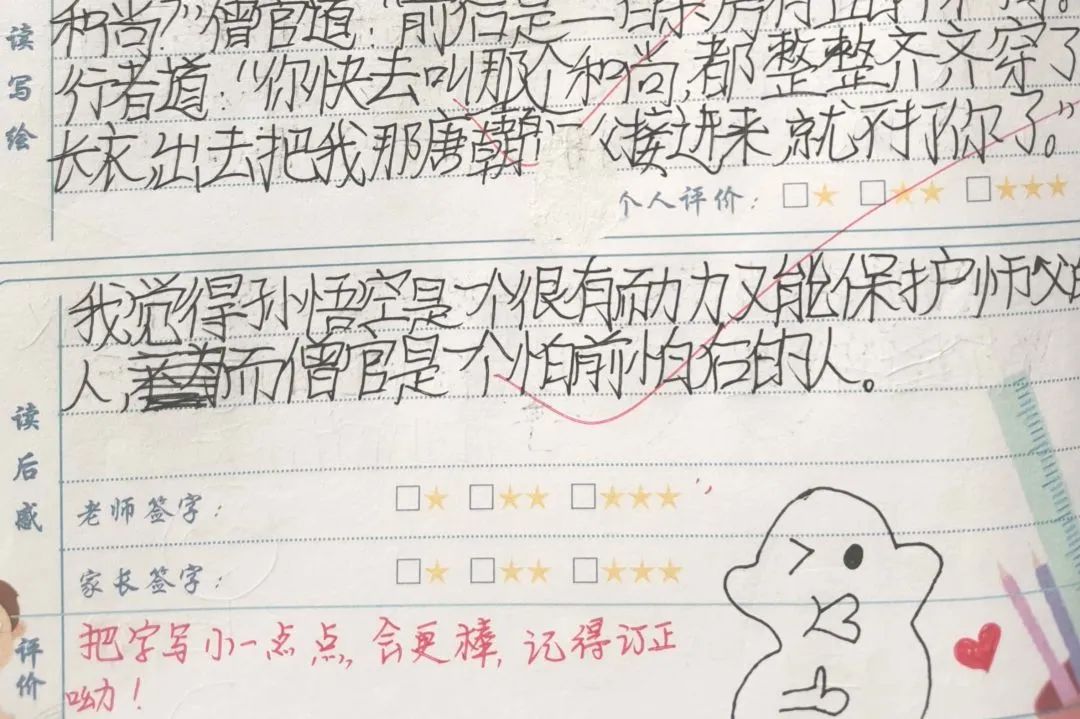 和尚?”僧官道:“前后是一百
行者道:“你快去叫那个和尚,都整整齐齐穿了
长衣,出去把我那唐朝 接进来,就不打你了。”
读写绘
个人评价:
我觉得孙悟空是一个很有耐力又能保护师父的
人,而僧官是一个怕前怕后的人。
读后感
老师签字:
家长签字:
评价
把字写小一点点,会更棒,记得订正
呦!